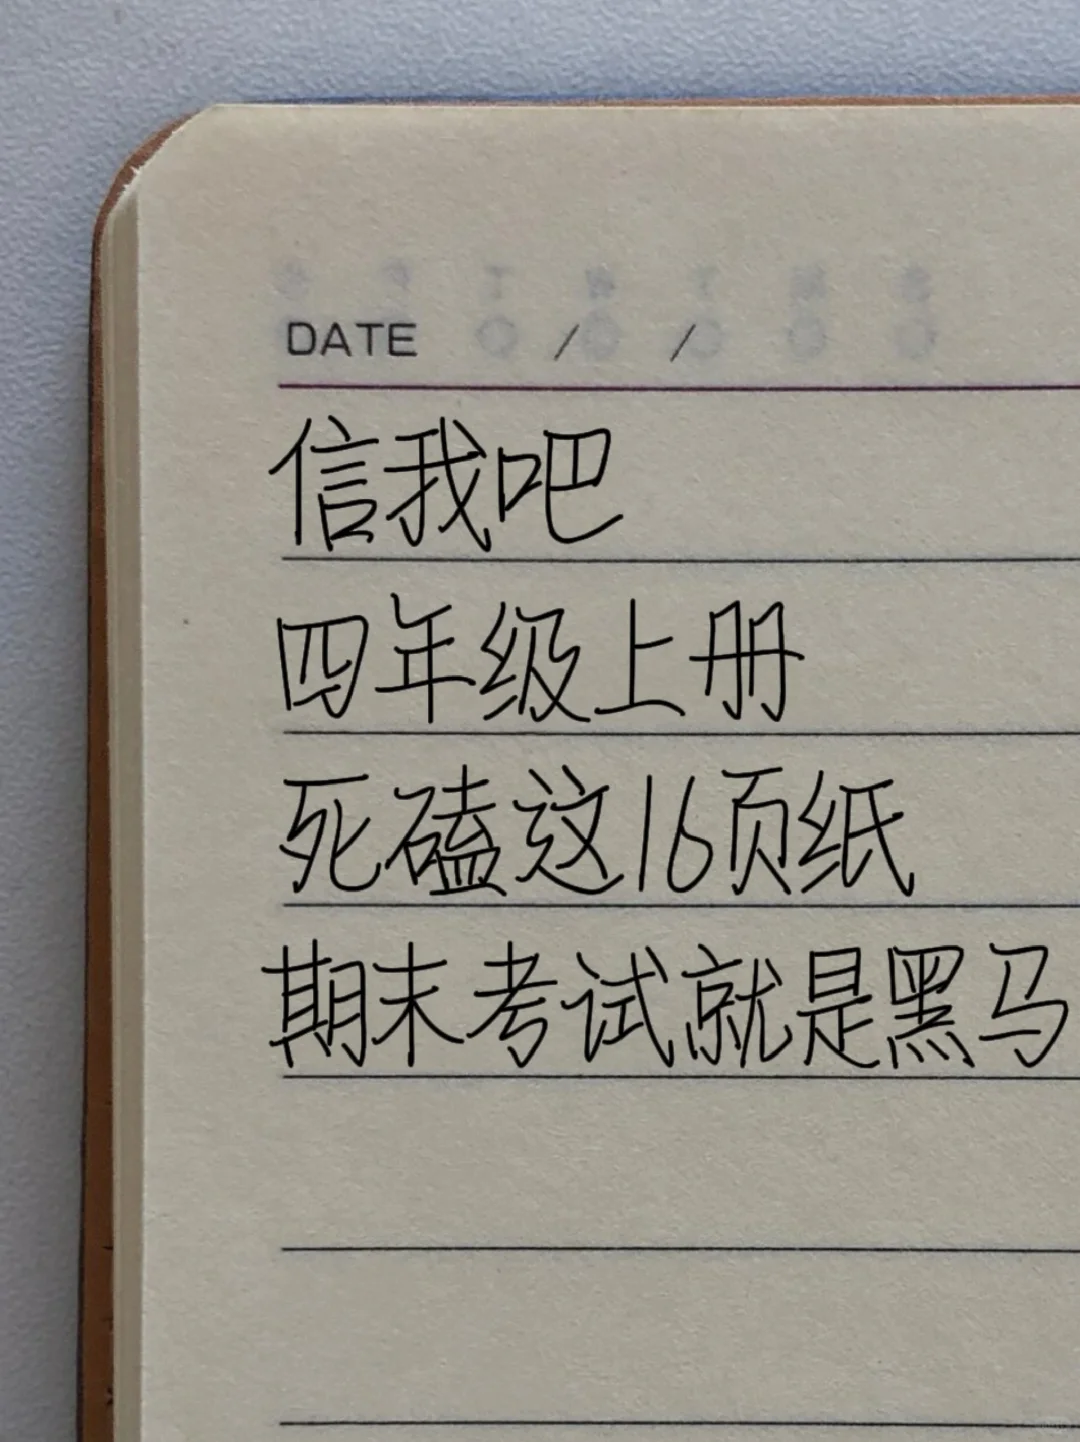 DATE / /
信我吧
四年级上册
死磕这16页纸
期末考试就是黑马